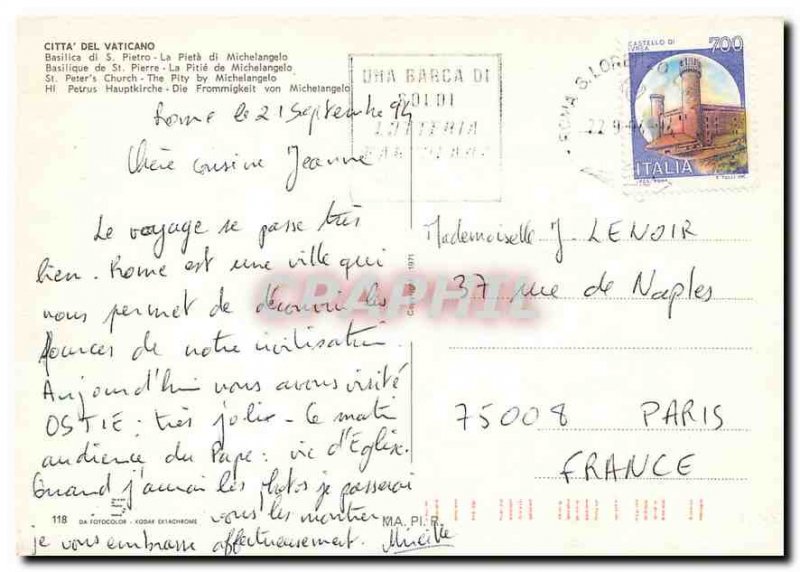 CITTA' DEL VATICANO
Basilica di S. Pietro - La Pietà di Michelangelo
Basilique de St. Pierre - La Pitié de Michelangelo
St. Peter's Church - The Pity by Michelangelo
Hl Petrus Hauptkirche - Die Frommigkeit von Michelangelo
UNA BARCA DI
SOLDI
LOTTERIA
ROMA S. LORENZO
22.9.94
CASTELLO DI
IVREA
700
ITALIA
Rome le 21 Septembre 94
Chère cousine Jeanne
Le voyage se passe très
bien. Rome est une ville qui
nous permet de découvrir les
sources de notre civilisation.
Aujourd'hui nous avons visité
OSTIE : très jolie - Ce matin
audience du Pape : vie d'Eglise.
Quand j'aurai les photos je passerai
vous les montrer
je vous embrasse affectueusement.
Mademoiselle J. LENOIR
37 rue de Naples
75008 PARIS
FRANCE
1971
CPAPHIL
118 DA FOTOCOLOR - KODAK EKTACHROME
MA. PI. R.